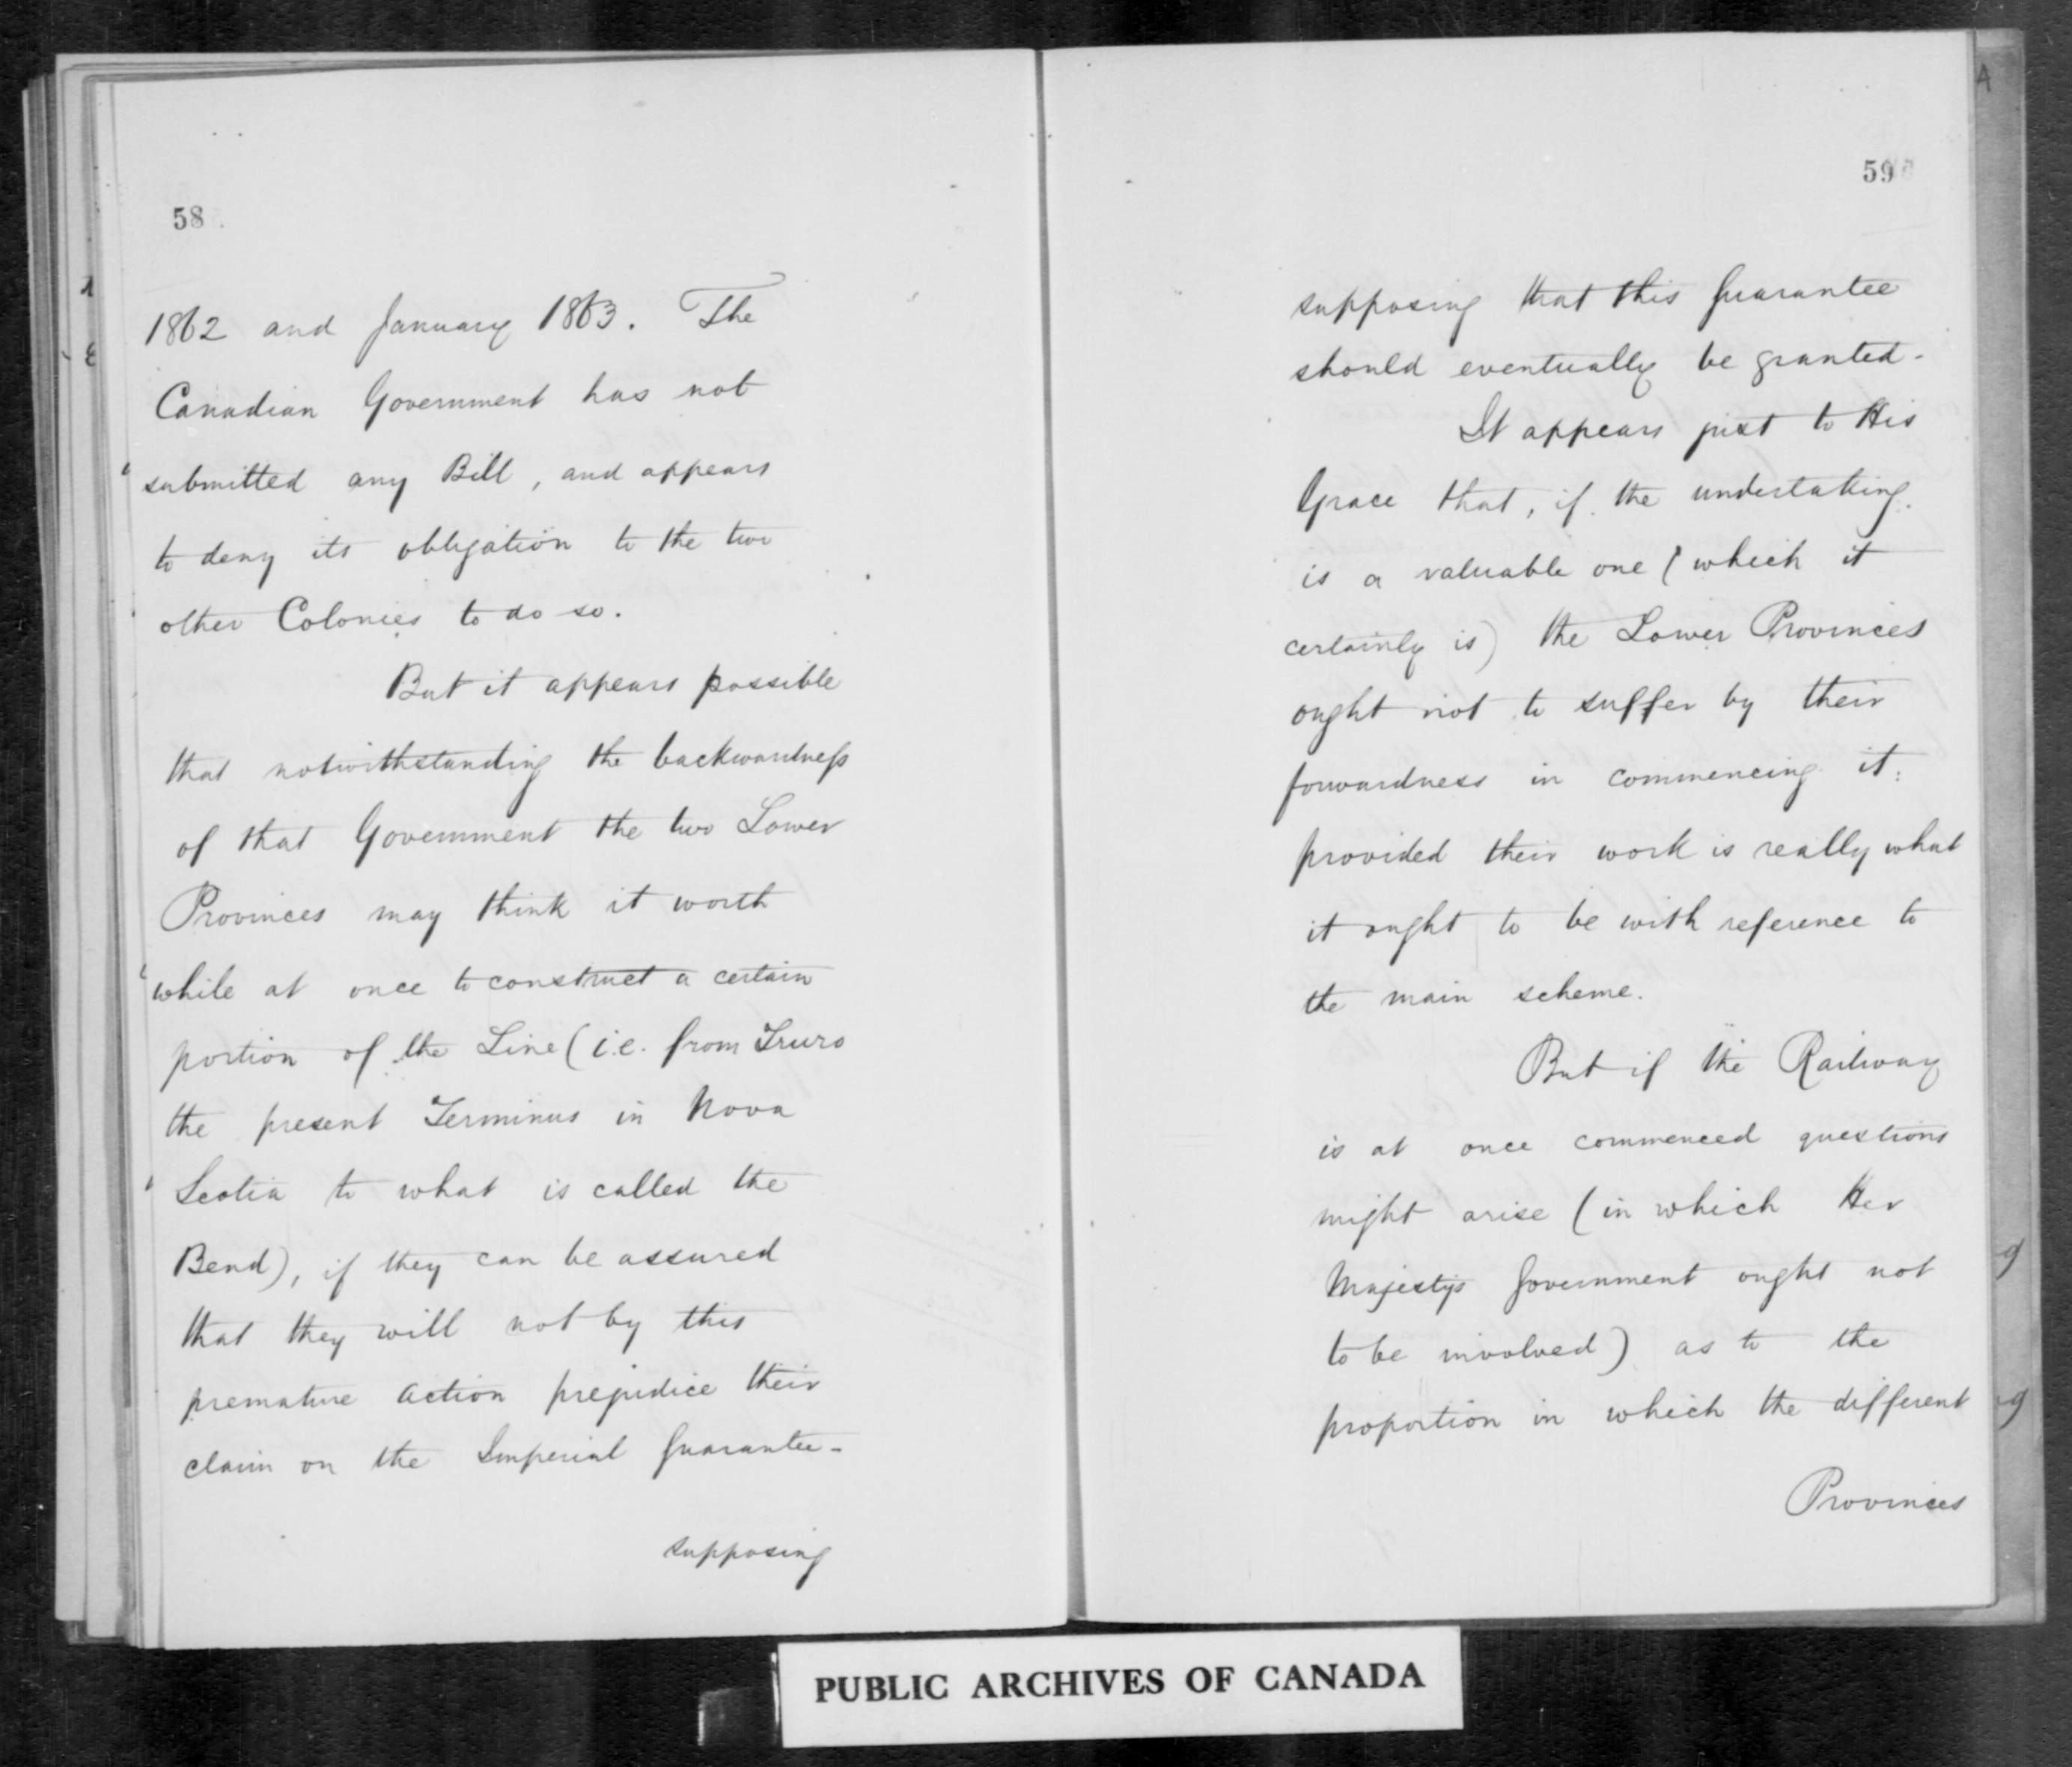 58
1862 and January 1863. The
Canadian Government has not
submitted any Bill, and appears
to deny its obligation to the two
other Colonies to do so.
But it appears possible
that notwithstanding the backwardness
of that Government the two Lower
Provinces may think it worth
while at once to construct a certain
portion of the Line (i.e. from Truro
the present Terminus in Nova
Scotia to what is called the
Bend), if they can be assured
that they will not by this
premature action prejudice their
claim on the Imperial Guarantee -
supposing
59
supposing that this Guarantee
should eventually be granted -
It appears just to His
Grace that, if the undertaking
is a valuable one (which it
certainly is) the Lower Provinces
ought not to suffer by their
forwardness in commencing it:
provided their work is really what
it ought to be with reference to
the main scheme.
But if the Railway
is at once commenced questions
might arise (in which Her
Majestys Government ought not
to be involved) as to the
proportion in which the different
Provinces
PUBLIC ARCHIVES OF CANADA